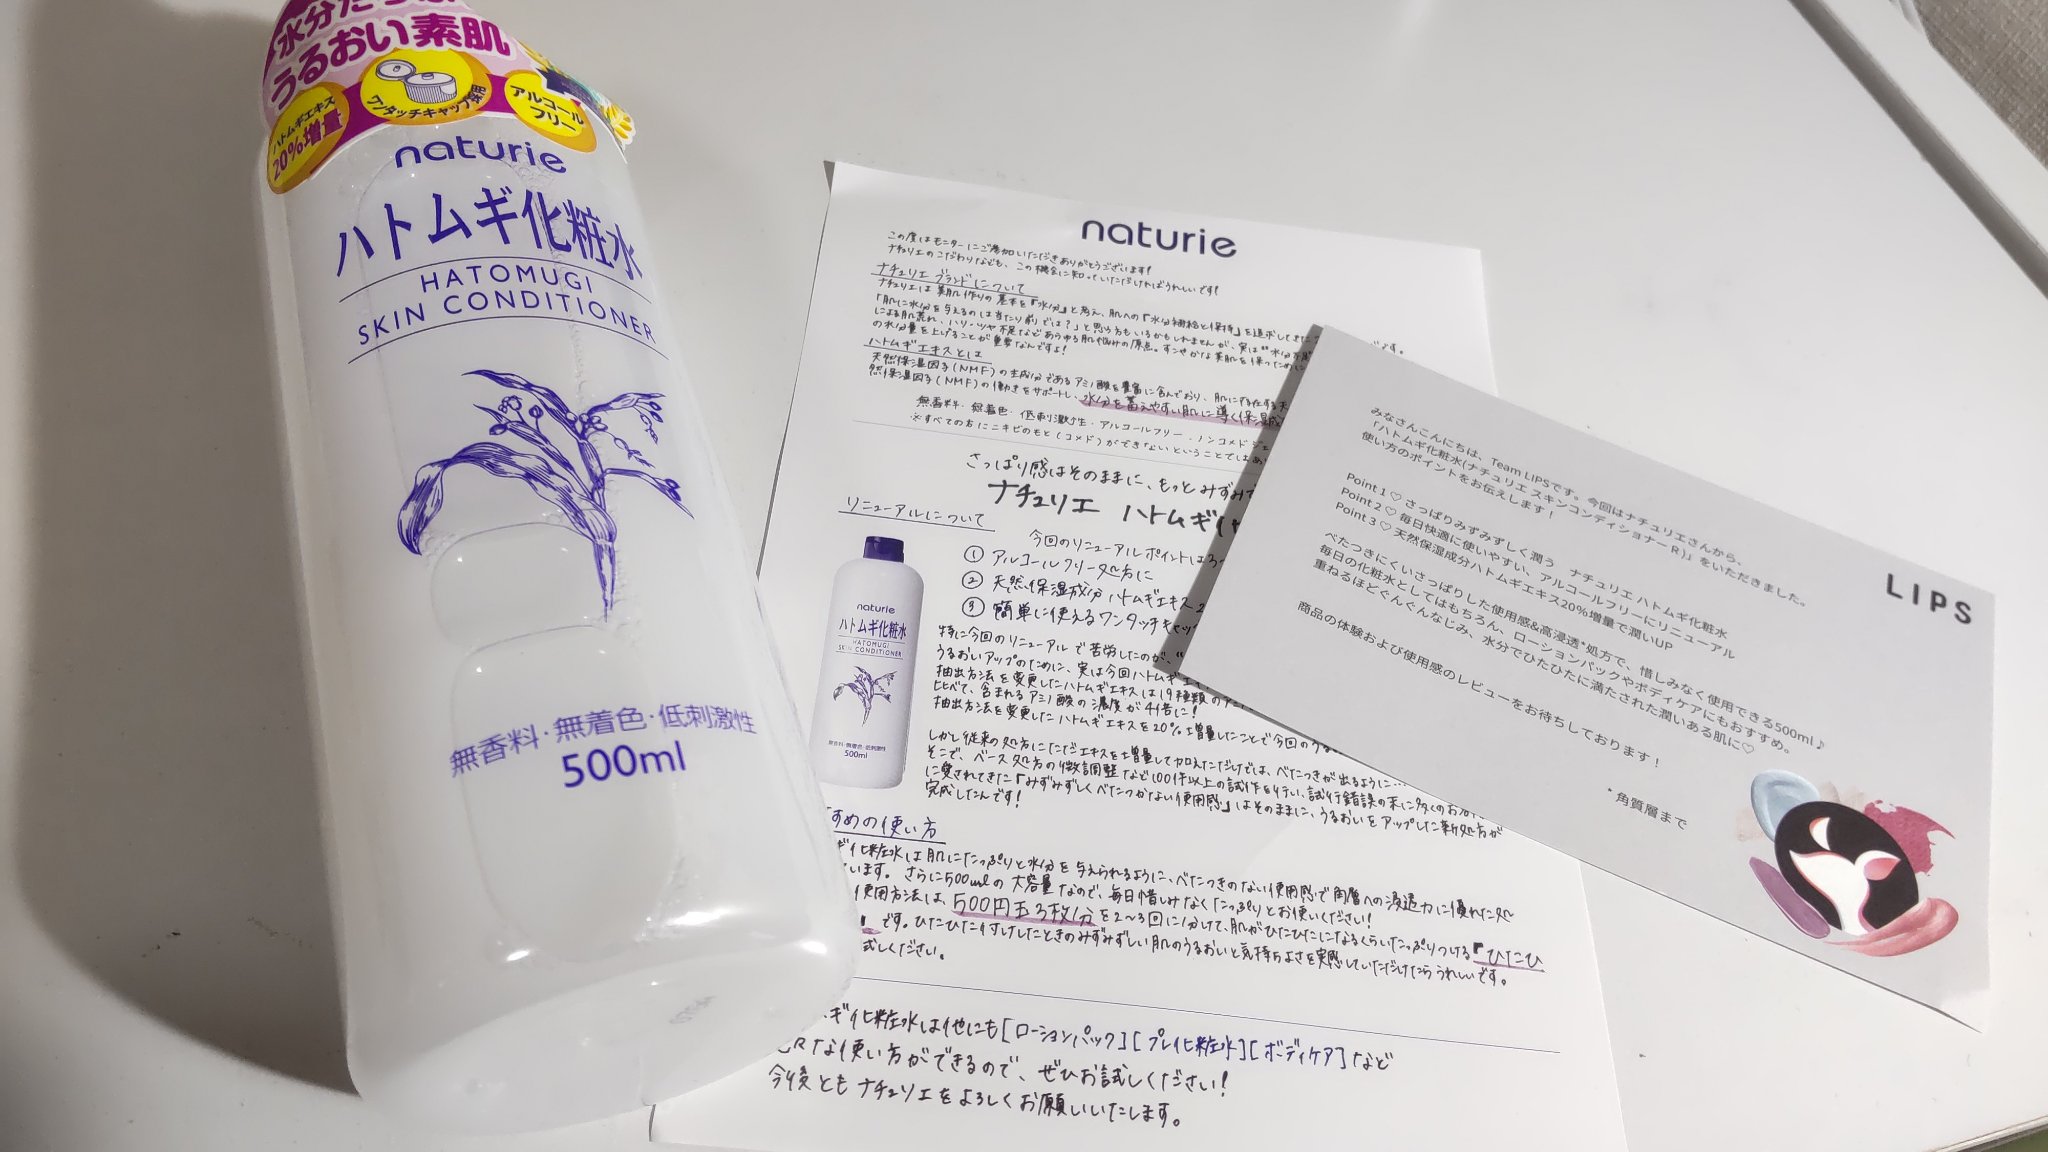 水分たっぷ
うるおい素肌
ハトムギエキス
20%増量
ワンタッチキャップ採用
アルコール
フリー
naturie
ハトムギ化粧水
HATOMUGI
SKIN CONDITIONER
無香料・無着色・低刺激性
500ml
naturie
この度はモニターにご参加いただきありがとうございます!
ナチュリエのこだわりなども、この機会に知っていただければうれしいです!
ナチュリエブランドについて
ナチュリエは素肌作りの基本を『水分』と考え、肌への『水分補給と保持』を追求してきた です。
「肌に水分を与えるのは当たり前では?」と思う方もいるかもしれませんが、実は"水分不足
による肌荒れ、ハリ・ツヤ不足などあらゆる肌悩みの原点。すこやかな素肌を保つために
の水分量を上げることが重要なんですよ!
ハトムギエキスとは
天然保湿因子(NMF)の主成分であるアミノ酸を豊富に含んでおり、肌に存在する天
然保湿因子(NMF)の働きをサポートし、水分を蓄えやすい肌に導く保湿成
無香料・無着色・低刺激性・アルコールフリー・ノンコメドジェ
※すべての方にニキビのもと(コメド)ができないということではあ
さっぱり感はそのままに、もっとみずみず
ナチュリエ ハトムギ化
リニューアルについて
今回のリニューアルポイントは3つ
① アルコールフリー処方に
② 天然保湿成分ハトムギエキス2
③ 簡単に使えるワンタッチキャップ
naturie
ハトムギ化粧水
HATOMUGI
SKIN CONDITIONER
無香料・無着色・低刺激性
500ml
特に今回のリニューアルで苦労したのが、"
うるおいアップのために、実は今回ハトムギエキ
抽出方法を変更したハトムギエキスは19種類のアミ
比べて、含まれるアミノ酸の濃度が4倍に!
抽出方法を変更したハトムギエキスを20%増量したことで今回のうる
しかし従来の処方にただエキスを増量して加えただけでは、べたつきが出るように…
そこで、ベース処方の微調整など100件以上の試作を行い、試行錯誤の末に多くのお客様
に愛されてきた『みずみずしくべたつかない使用感』はそのままに、うるおいをアップした新処方が
完成したんです!
すめの使い方
ギ化粧水は肌にたっぷりと水分を与えられるように、べたつきのない使用感で角層への浸透力に優れた処
います。さらに500mlの大容量なので、毎日惜しみなくたっぷりとお使いください!
使用方法は、500円玉3枚分を2~3回に分けて、肌がひたひたになるくらいたっぷりつける『ひたひ
』です。ひたひた付けしたときのみずみずしい肌のうるおいと気持ちよさを実感していただけたらうれしいです。
試しください。
ギ化粧水は他にも[ローションパック][プレ化粧水][ボディケア]など
な使い方ができるので、ぜひお試しください!
今後ともナチュリエをよろしくお願いいたします。
LIPS
みなさんこんにちは、Team LIPSです。今回はナチュリエさんから、
「ハトムギ化粧水(ナチュリエ スキンコンディショナー R)」をいただきました。
使い方のポイントをお伝えします!
Point 1 ♡ さっぱりみずみずしく潤う ナチュリエ ハトムギ化粧水
Point 2 ♡ 毎日快適に使いやすい、アルコールフリーにリニューアル
Point 3 ♡ 天然保湿成分ハトムギエキス20%増量で潤いUP
べたつきにくいさっぱりした使用感&高浸透*処方で、惜しみなく使用できる500ml♪
毎日の化粧水としてはもちろん、ローションパックやボディケアにもおすすめ。
重ねるほどぐんぐんなじみ、水分でひたひたに満たされた潤いある肌に♡
商品の体験および使用感のレビューをお待ちしております!
*角質層まで